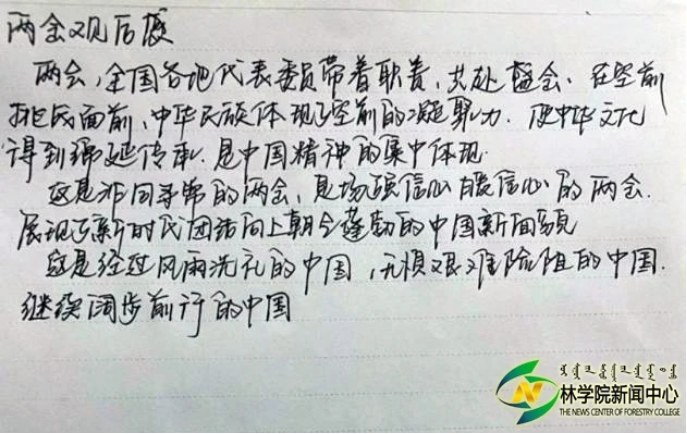 两会观后感
两会,全国各地代表委员带着职责,共赴盛会、在空前
挑战面前,中华民族体现了空前的凝聚力.使中华文化
得到绵延传承.是中国精神的集中体现.
这是非同寻常的两会,是场强信心 暖信心的两会.
展现了新时代团结向上朝气蓬勃的中国新面貌
这是经过风雨洗礼的中国,无惧艰难险阻的中国.
继续阔步前行的中国
林学院新闻中心
THE NEWS CENTER OF FORESTRY COLLEGE